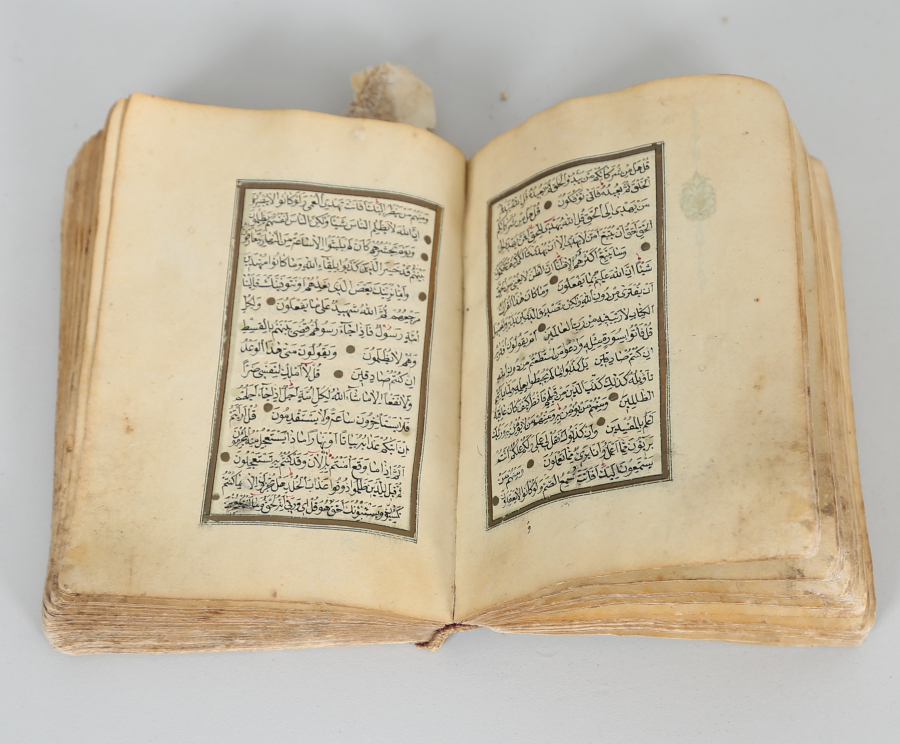 قل هل من شركائكم من يبدؤا الخلق ثم يعيده قل الله يبدؤا
الخلق ثم يعيده فانى تؤفكون قل هل من شركائكم
من يهدى الى الحق قل الله يهدى للحق افمن يهدى الى
الحق احق ان يتبع امن لا يهدى الا ان يهدى فما لكم كيف تحكمون
وما يتبع اكثرهم الا ظنا ان الظن لا يغنى من الحق
شيئا ان الله عليم بما يفعلون وما كان هذا القران
ان يفترى من دون الله ولكن تصديق الذى بين يديه وتفصيل
الكتاب لا ريب فيه من رب العالمين ام يقولون افتريه
قل فأتوا بسورة مثله وادعوا من استطعتم من دون الله
ان كنتم صادقين بل كذبوا بما لم يحيطوا بعلمه ولما يأتهم
تأويله كذلك كذب الذين من قبلهم فانظر كيف كان عاقبة
الظالمين ومنهم من يؤمن به ومنهم من لا يؤمن به وربك
اعلم بالمفسدين وان كذبوك فقل لى عملى ولكم عملكم انتم
بريؤن مما اعمل وانا برئ مما تعملون ومنهم من
يستمعون اليك افانت تسمع الصم ولو كانوا لا يعقلون
ومنهم من ينظر اليك افانت تهدى العمى ولو كانوا لا يبصرون
ان الله لا يظلم الناس شيئا ولكن الناس انفسهم يظلمون
ويوم يحشرهم كان لم يلبثوا الا ساعة من النهار يتعارفون
بينهم قد خسر الذين كذبوا بلقاء الله وما كانوا مهتدين
واما نرينك بعض الذى نعدهم او نتوفينك فالينا
مرجعهم ثم الله شهيد على ما يفعلون ولكل
امة رسول فاذا جاء رسولهم قضى بينهم بالقسط
وهم لا يظلمون ويقولون متى هذا الوعد
ان كنتم صادقين قل لا املك لنفسى ضرا
ولا نفعا الا ما شاء الله لكل امة اجل اذا جاء اجلهم
فلا يستأخرون ساعة ولا يستقدمون قل ارايتم
ان اتيكم عذابه بياتا او نهارا ماذا يستعجل منه المجرمون
اثم اذا ما وقع امنتم به الان وقد كنتم به تستعجلون
ثم قيل للذين ظلموا ذوقوا عذاب الخلد هل تجزون الا بما كنتم
تكسبون ويستنبؤنك احق هو قل اى وربى انه لحق وما انتم بمعجزين